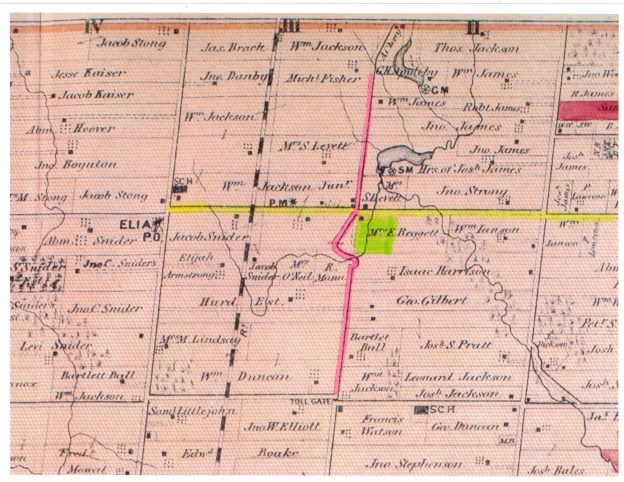 IV III II
Jacob Stong
Jas. Brack
Wm Jackson
Thos. Jackson
Jesse Kaiser
Jacob Kaiser
Jno. Danby
Michl Fisher
Wm James
R. James
Wm Jackson
Wm James
Robt James
GM
Abm Hoover
Jno. James
Jno Boynton
Mrs S. Levett
Jno. James
SM
Hrs. of Josh James
Josh James
SCH
Wm Jackson Junr
Jno. Strong
M. Stong
Jacob Stong
P.M
S. Levett
ELIA
P.O
Abm Snider
Jacob Snider
Mrs E. Beggett
Wm Janson
Janson
Jno C. Sniders
Elijah Armstrong
Jacob Snider
Mrs O'Neil
R. Mann
Isaac Harrison
Hurd Est.
Geo. Gilbert
Jno C. Snider
Levi Snider
Mrs M. Lindsay
Bartlet Ball
Josh S. Pratt
Dickson
Josh
Bartlett Ball
Wm Duncan
Wm Jackson
Leonard Jackson
Wm Jackson
Josh Jackson
TOLL GATE
Saml Littlejohn
SCH.
Jno W. Elliott
Francis Watson
Geo. Duncan
Fred. Mowat
Edwd Boake
Jno. Stephenson
Josh Bales